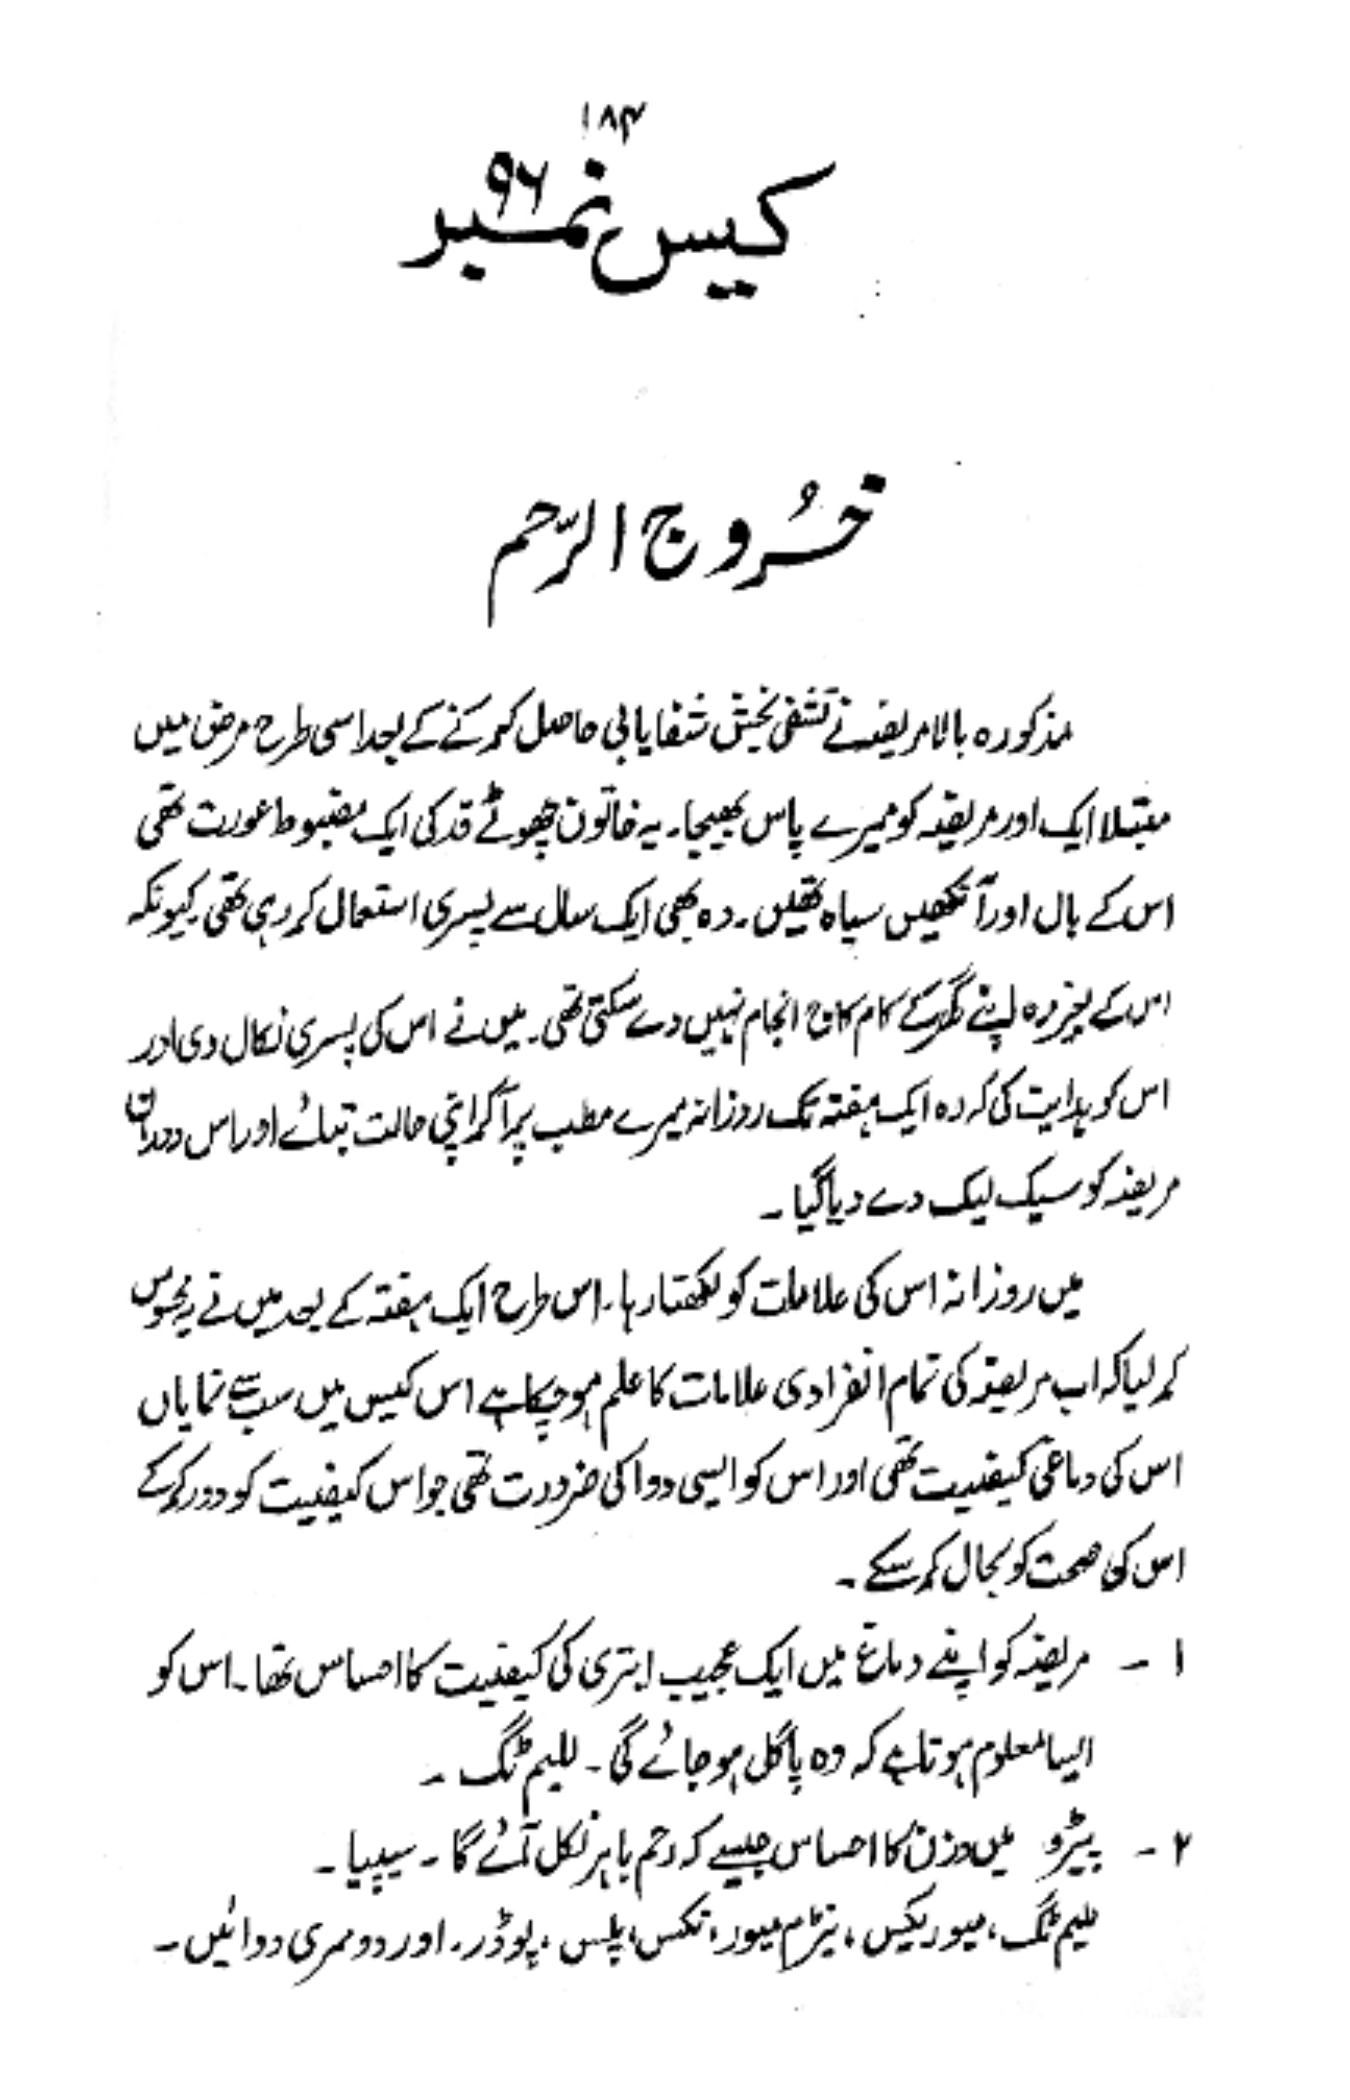 ۱۸۴
کیس نمبر ۹۶
خُروج الرّحم
مذکورہ بالا مریضہ نے تشفی بخش شفایابی حاصل کرنے کے بعد اسی طرح مرض میں
مبتلا ایک اور مریضہ کو میرے پاس بھیجا۔ یہ خاتون چھوٹے قد کی ایک مضبوط عورت تھی
اس کے بال اور آنکھیں سیاہ تھیں۔ وہ بھی ایک سال سے پسری استعمال کر رہی تھی۔ کیونکہ
اس کے بغیر وہ اپنے گھر کے کام کاج انجام نہیں دے سکتی تھی۔ میں نے اس کی پسری نکال دی اور
اس کو ہدایت کی کہ وہ ایک ہفتہ تک روزانہ میرے مطب پر آ کر اپنی حالت بتائے اور اس دوران
مریضہ کو سیک لیک دے دیا گیا۔
میں روزانہ اس کی علامات کو لکھتا رہا۔ اس طرح ایک ہفتہ کے بعد میں نے یہ محسوس
کر لیا کہ اب مریضہ کی تمام انفرادی علامات کا علم ہو چکا ہے اس کیس میں سب سے نمایاں
اس کی دماغی کیفیت تھی اور اس کو ایسی دوا کی ضرورت تھی جو اس کیفیت کو دور کر کے
اس کی صحت کو بحال کر سکے۔
۱ - مریضہ کو اپنے دماغ میں ایک عجیب ابتری کی کیفیت کا احساس تھا۔ اس کو
ایسا معلوم ہوتا ہے کہ وہ پاگل ہو جائے گی۔ للیم ٹگ۔
۲ - پیڑو میں وزن کا احساس جیسے کہ رحم باہر نکل آئے گا۔ سیپیا۔
للیم ٹگ، میوریکس، نیٹرم میور، نکس، پلس، پوڈر۔ اور دوسری دوائیں۔